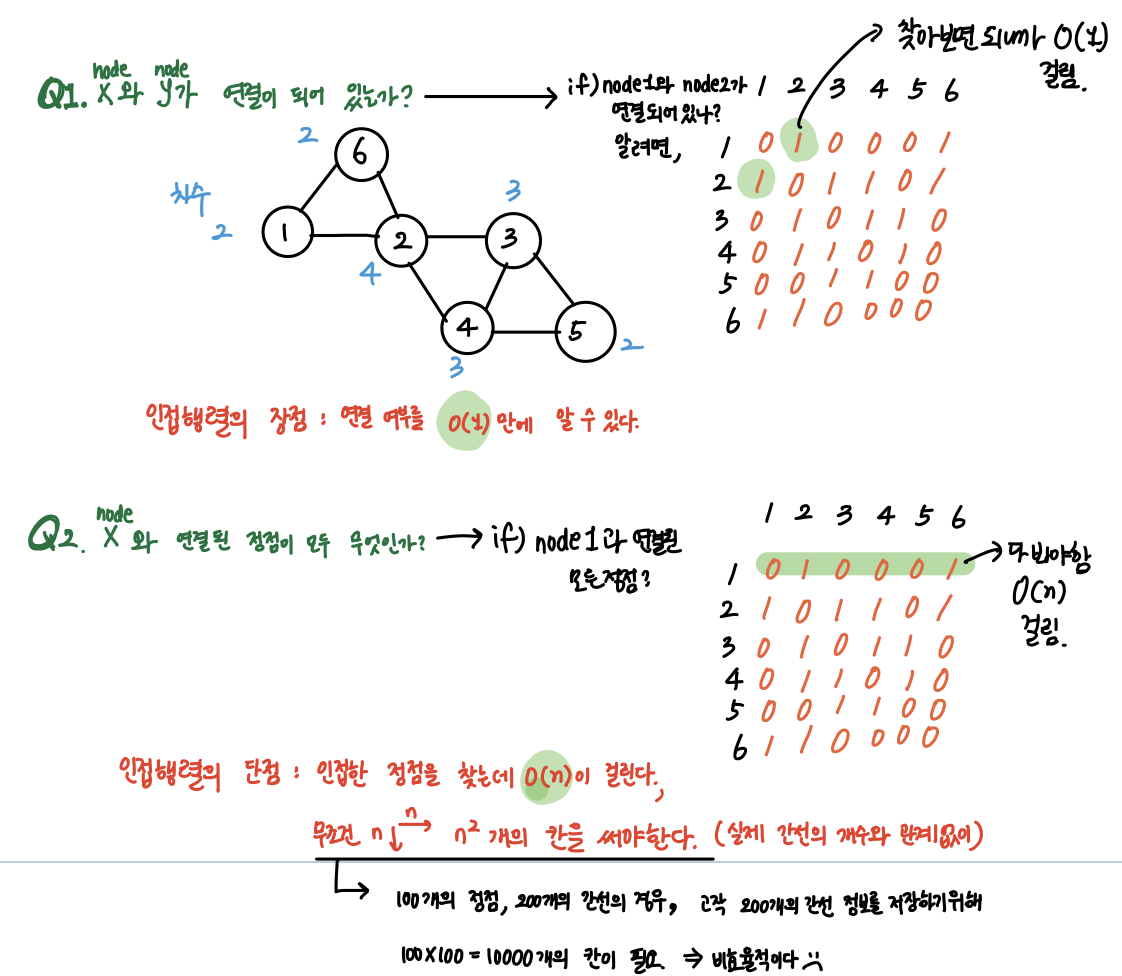 찾아보면 되니까 O(1)
걸림.
node node
Q1. X와 y가 연결이 되어 있는가?
if) node1와 node2가
연결되어 있나?
알려면,
1 2 3 4 5 6
1 0 1 0 0 0 1
2 1 0 1 1 0 1
3 0 1 0 1 1 0
4 0 1 1 0 1 0
5 0 0 1 1 0 0
6 1 1 0 0 0 0
차수
2
6
2
1
4
2
3
3
3
4
2
5
인접행렬의 장점 : 연결 여부를 O(1) 만에 알 수 있다.
node
Q2. X와 연결된 정점이 모두 무엇인가?
if) node1과 연결된
모든 정점?
1 2 3 4 5 6
1 0 1 0 0 0 1
2 1 0 1 1 0 1
3 0 1 0 1 1 0
4 0 1 1 0 1 0
5 0 0 1 1 0 0
6 1 1 0 0 0 0
다 봐야함
O(n)
걸림.
인접행렬의 단점 : 인접한 정점을 찾는데 O(n)이 걸린다.,
무조건 n n n² 개의 칸을 써야한다. (실제 간선의 개수와 관계없이)
100개의 정점, 200개의 간선의 경우, 고작 200개의 간선 정보를 저장하기위해
100X100 = 10000개의 칸이 필요. ⇒ 비효율적이다